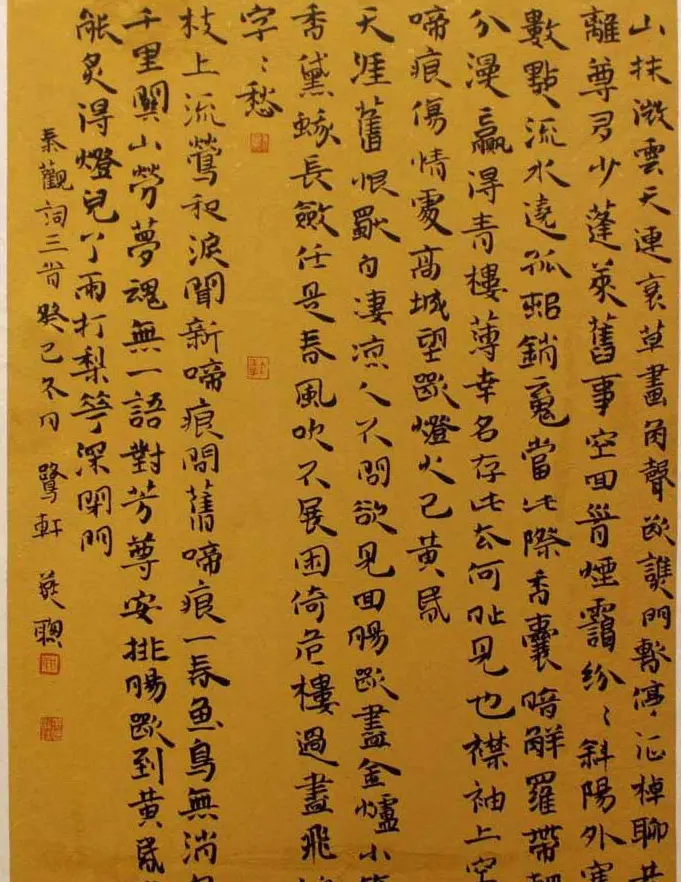 山抹微雲天連衰草畫角聲斷譙門暫停征棹聊共
離尊多少蓬萊舊事空回首煙靄紛〻斜陽外寒
數點流水遶孤邨銷魂當此際香囊暗解羅帶輕
分漫贏得青樓薄幸名存此去何時見也襟袖上空
啼痕傷情處高城望斷燈火已黃昏
天涯舊恨獨自淒涼人不問欲見回腸斷盡金爐小篆
香黛蛾長斂任是春風吹不展困倚危樓過盡飛鴻
字〻愁
枝上流鶯和淚聞新啼痕間舊啼痕一春魚鳥無消息
千里關山勞夢魂無一語對芳尊安排腸斷到黃昏
能炙得燈兒了雨打梨花深閉門
秦觀詞三首癸巳冬月 鷺軒 聰